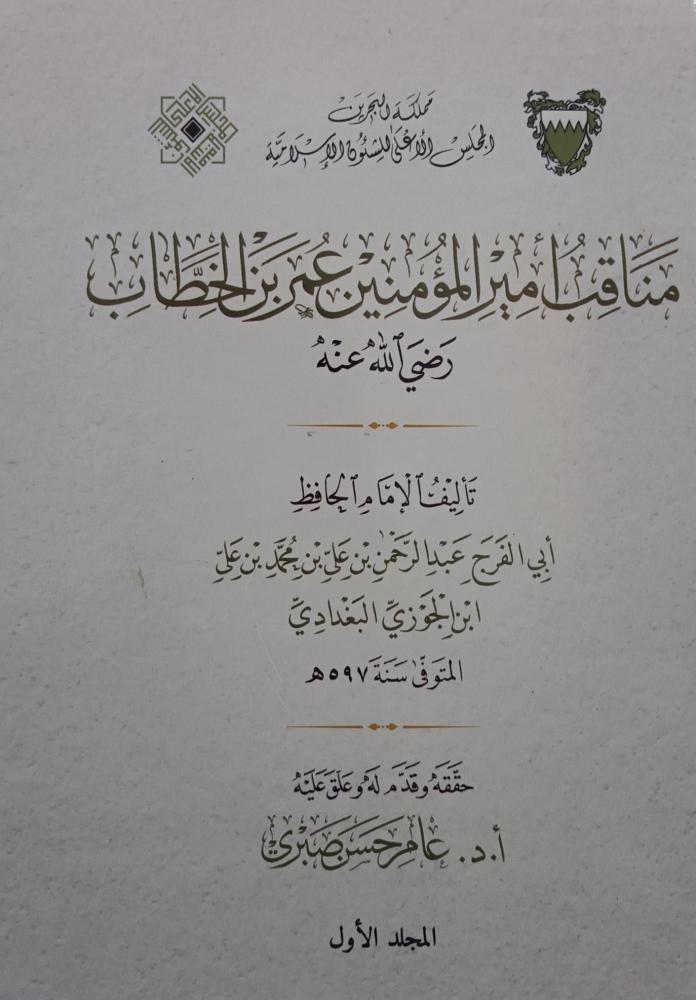 مملكة البحرين
المجلس الأعلى للشئون الإسلامية
مَنَاقِبُ أَمِيرِ المُؤْمِنِينَ عُمَرَ بَنِ الخَطَّابِ
رَضِيَ اللهُ عَنْهُ
تَأليفُ الإمَامِ الحَافِظِ
أبي الفَرَجِ عَبْدِ الرَّحْمنِ بْنِ عَلِيِّ بْنِ مُحَمَّدِ بْنِ عَلِيٍّ
ابْنِ الجَوْزِيِّ البَغْدَادِيِّ
المتَوَفَّى سَنَةَ ٥٩٧هـ
حقَّقَهُ وقَدَّمَ لَهُ وعَلَّقَ عَلَيْهِ
أ.د. عَامِر حَسَن صَبْرِي
المجلد الأول